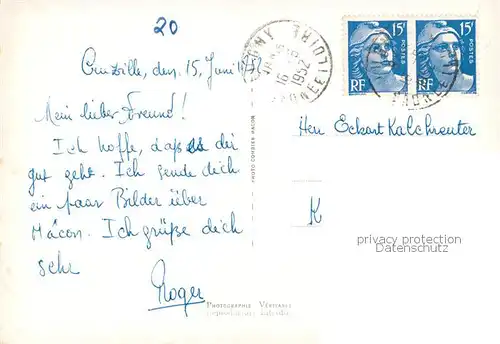 20
Cruzille, den 15. Juni 1952
Mein lieber Freund!
Ich hoffe, daß es dir
gut geht. Ich sende dich
ein paar Bilder über
Mâcon. Ich grüße dich
sehr
Roger
PHOTOGRAPHIE VÉRITABLE
PHOTO COMBIER MACON
16 - 6
1952
SAONE ET LOIRE
15F
POSTES
RF
15F
POSTES
RF
Herr Eckart Kalchreuter
K
privacy protection
www.ansichtskartenversand.com